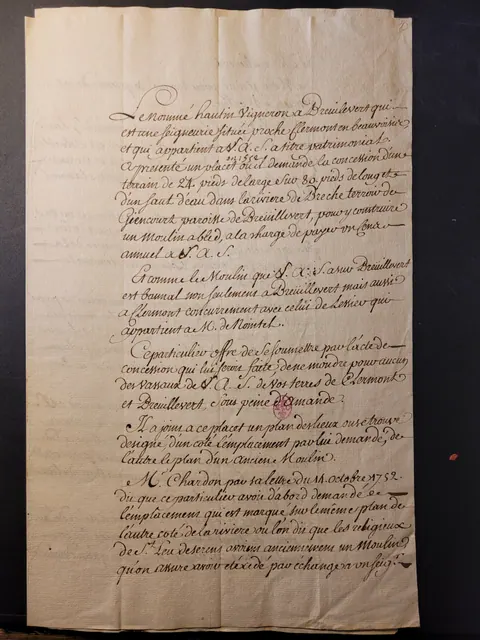 Le nommé hautin Vigneron a Breuilevert qui
est une seigneurie située proche Clermont en beauvoisis
et qui appartient a V. A. S. a titre patrimonial
a presenté un placet ou il demande la concession d'une
en 1752
terrain de 24. pieds de large sur 80 pieds de long et
d'un saut d'eau dans la riviere de Breche terroir de
Giencourt paroisse de Breüillevert, pour y construire
un Moulin a bled, a la charge de payer un Cens
annuel a V. A. S.
Et comme le Moulin que V. A. S. a sur Breüillevert
est bannal non seulement a Breüillevert mais aussi
a Clermont concurremment avec celui de
appartient a M. de Nointel..
Ce particulier offre de se soumettre par l'acte de
concession qui lui sera faite, de ne moudre pour aucun
des vassaux de V. A. S. de vos terres de Clermont
et Breüillevert, sous peine d'amande.
Il a joint a ce placet un plan des lieux ou se trouve
designé d'un coté l'emplacement par lui demandé, de
l'autre le plan d'un ancien Moulin.
M. Chardon par sa lettre du 14 octobre 1752.
dit que ce particulier avoit d'abord demandé
l'emplacement qui est marqué sur le même plan de
l'autre coté de la riviere ou l'on dit que les religieux
de St. Leu deserens avoient anciennement un Moulin
qu'on assure avoir eté cedé par échange a un seigr.